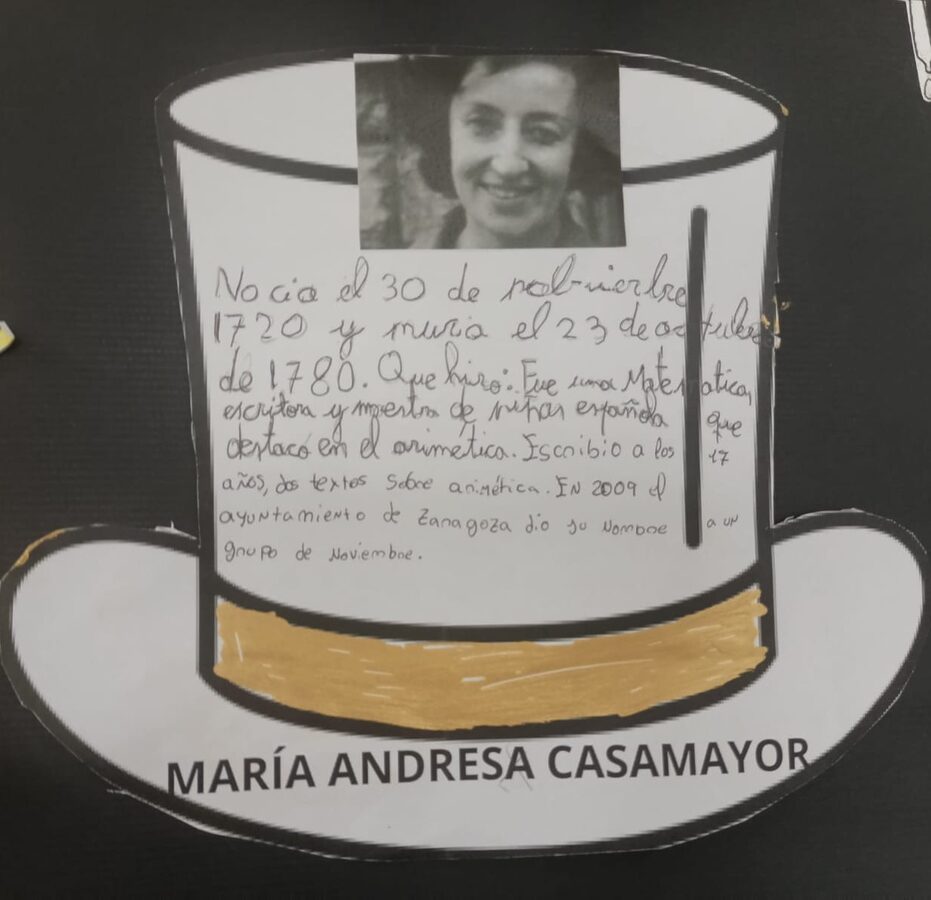 Nacio el 30 de nobienbre
1720 y murio el 23 de octubre
de 1780. Que hizo: Fue una Matematica,
escritora y maestra de niñas española que
destacó en el arimética. Iscribio a los 17
años, dos textos sobre arimética. EN 2009 el
ayuntamiento de Zaragoza dio su nombre a un
grupo de Noviembre.
MARÍA ANDRESA CASAMAYOR